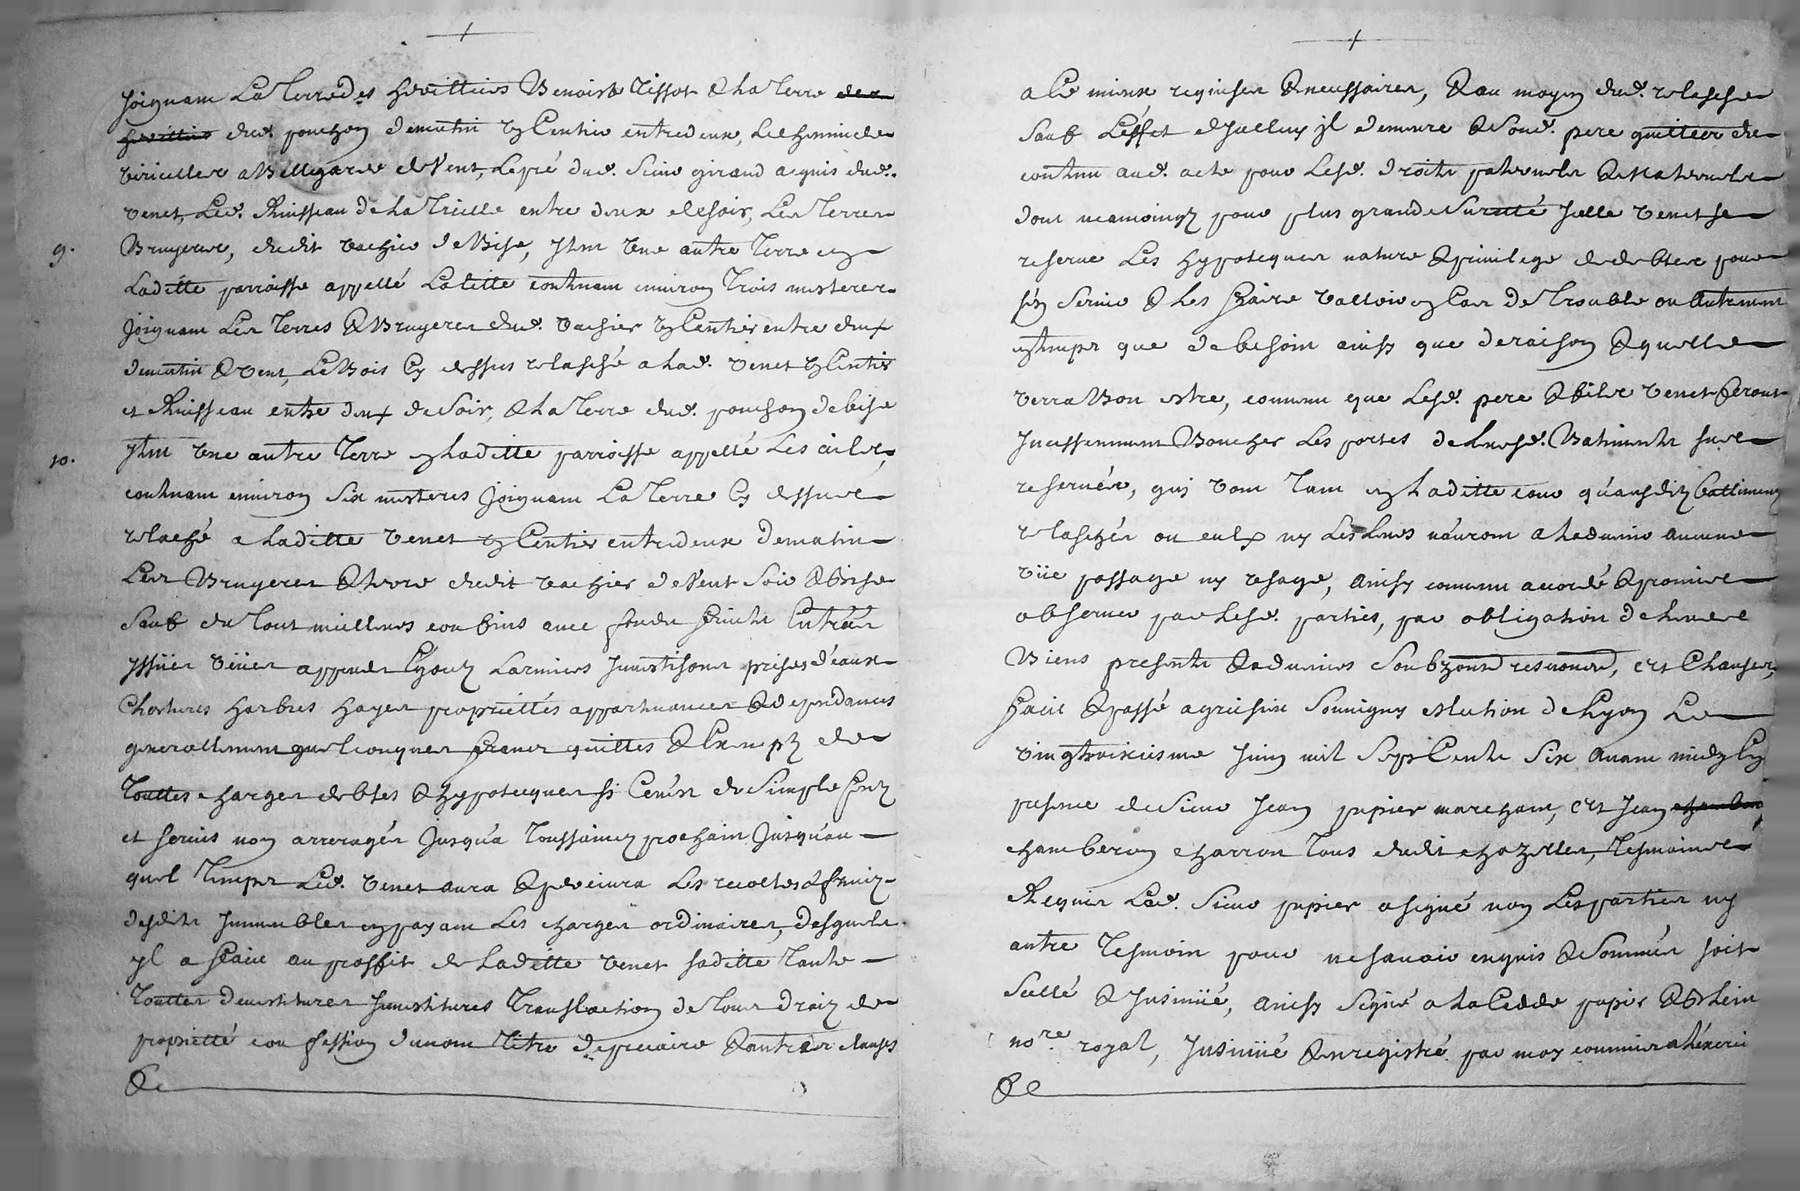 +
Joignant La Terre des heritiers Benoist Tissot & La Terre des
heritiers dud. ponchon de matin & Centier entredeux, Le chemin de
viricelles a Bellegarde de Vent, Le pré dud. Sieur giraud acquis dud.
venet, Led. Ruisseau de la Trielle entre deux de soir, Les Terres
9. Bruyeres, dudit vachier de Bise, Jtem Une autre Terre en
Laditte parroisse appellé Lalitte contenant environ Trois mesteres
Joignant Les Terres & Bruyeres dud. vachier & Centier entre deux
de matin & vent, Le Bois Cy dessus relasché a lad. venet & Centier
et Ruisseau entre deux de soir, & la Terre dud. ponchon de bise
10. Jtem Une autre Terre en laditte parroisse appellé Les
contenant environ Six mesteres Joignant La Terre Cy dessus
relaché a laditte venet & Centier entredeux de matin
Les Bruyeres & Terre dudit vachier de Vent Soir & Bise
Sauf du Tout meilleurs confins avec fonds fruicts Entrées
Yssües vües appendances Jnvestisons prises d'eaux
Clostures harbres hayes proprietés appartenances & dependances
generallement quelconques francs quittes & Exempz de
Touttes charges debtes & hypotecques si Ce n'est de Simple Cens
et servis non arreragés Jusqu'a Toussainctz prochain Jusqu'au
quel Temps Led. venet aura & percevra Les recoltes & fruicz
desdits Jmmeubles en payant Les charges ordinaires, desquels
yl a faict au proffit de Laditte venet saditte Tante
Touttes devestitures Jnvestitures Translaction de Tour droiz de
proprietté confession du nom Titre de precaire & autres clauses
&c
+
a Ce mieux requises & necessaires, & au moyen dud. relasche
Sauf L'effet d'Jcelluy yl demeure & Sond. pere quitte du
contenu aud. acte pour Lesd. droits paternels & Maternels
dont neamoingz pour plus grande Surette Jcelle venet se
reserve Les hypotecques nature & privilege desd. debtes pour
s'en Servir & Les faire valloir en Cas de Trouble ou Autrement
en temps que de besoin ainsy que de raison & quelle
verra Bon estre, convenu que Lesd. pere & fils venet feront
Jncessamment Boucher Les portes de leursd. Batiments sur
reservés, qui vont Tant en Laditte cour qu'ausditz Battiments
relaschés ou eulx ny Les Leurs n'auront a Ladvenir aucune
vüe passage ny usage, Ainsy convenu accordé & promis
observer par Lesd. parties, par obligation de Leurs
Biens presents & advenirs Soubz toutes renonciations, et Clauses,
Faict & passé a Souvigny eslection de Lyon Le
vingttroisiesme Juin mil Sept Cents Six Avant midy En
presence de Sieur Jean pupier marchant, et Jean
chamberon charron Tous dudit chazelles, Tesmoins
Requis Led. Sieur pupier a signé non Les parties ny
autre Tesmoin pour ne scavoir enquis & Sommés soit
Scellé & Jnsinüé, Ainsy Signé a La Cedde pupier &
no.re royal, Jnsinüé & enregistré par moy commis a Lexercice
&c